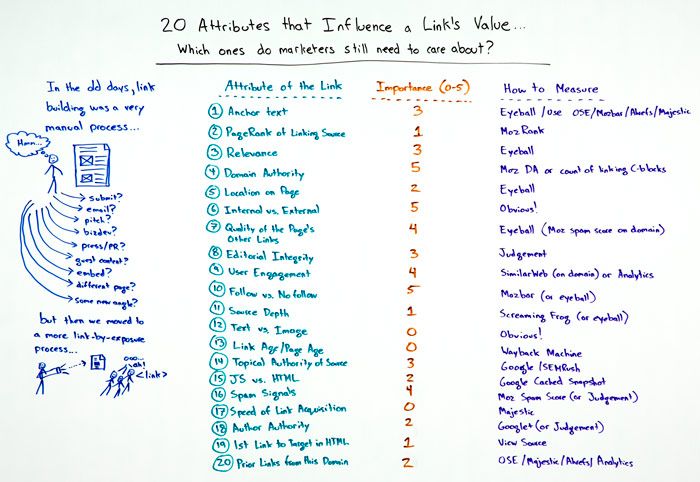 20 Attributes that Influence a Link's Value...
Which ones do marketers still need to care about?
In the old days, link
building was a very
manual process...
Hmm...
submit?
email?
pitch?
bizdev?
press/PR?
guest content?
embed?
different page?
some new angle?
but then we moved to
a more link-by-exposure
process...
ooo...
ah!
<link>
Attribute of the Link Importance (0-5) How to Measure
1 Anchor text 3 Eyeball / Use OSE/Mozbar/Ahrefs/Majestic
2 PageRank of Linking Source 1 MozRank
3 Relevance 3 Eyeball
4 Domain Authority 5 Moz DA or count of linking C-blocks
5 Location on Page 2 Eyeball
6 Internal vs. External 5 Obvious!
7 Quality of the Page's
Other Links 4 Eyeball (Moz spam score on domain)
8 Editorial Integrity 3 Judgement
9 User Engagement 4 SimilarWeb (on domain) or Analytics
10 Follow vs. Nofollow 5 Mozbar (or eyeball)
11 Source Depth 1 Screaming Frog (or eyeball)
12 Text vs. Image 0 Obvious!
13 Link Age/Page Age 0 Wayback Machine
14 Topical Authority of Source 3 Google/SEMRush
15 JS vs. HTML 2 Google Cached Snapshot
16 Spam Signals 4 Moz Spam Score (or Judgement)
17 Speed of Link Acquisition 0 Majestic
18 Author Authority 2 Google+ (or Judgement)
19 1st Link to Target in HTML 1 View Source
20 Prior Links from this Domain 2 OSE/Majestic/Ahrefs/Analytics